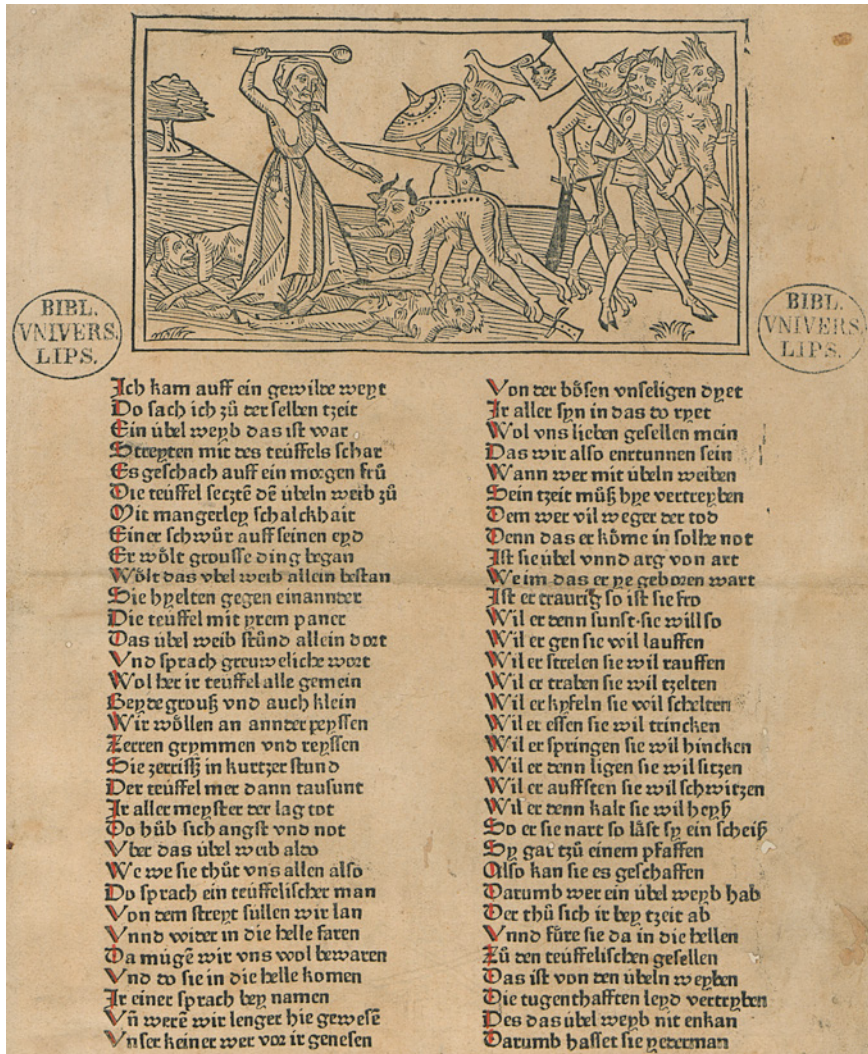 BIBL.
VNIVERS.
LIPS.
BIBL.
VNIVERS.
LIPS.
Ich kam auff ein gewilde weyt
Do sach ich zů der selben tzeit
Ein úbel weyb das ist war
Streyten mit des teúffels schar
Es geschach auff ein morgen frů
Die teúffel secztē dē úbeln weib zů
Mit mangerley schalckhait
Einer schwůr auff seinen eyd
Er wǒlt grousse ding began
Wǒlt das vbel weib allein bestan
Sie hyelten gegen einannder
Die teúffel mit yrem paner
Das úbel weib stůnd allein dort
Vnd sprach greuweliche wort
Wol her ir teúffel alle gemein
Beyde grouß vnd auch klein
Wir wǒllen an annder peyssen
Zerren grymmen vnd reyssen
Sie zerriß in kurtzer stund
Der teúffel mer dann tausunt
Ir aller meyster der lag tot
Do hůb sich angst vnd not
Vber das úbel weib aldo
We we sie thůt vns allen also
Do sprach ein teúffelischer man
Von dem streyt súllen wir lan
Vnnd wider in die helle faren
Da múgē wir vns wol bewaren
Vnd do sie in die helle komen
Ir einer sprach bey namen
Vñ werē wir lenger hie gewesē
Vnser keiner wer vor ir genesen
Von der bǒsen vnseligen dyet
Ir aller syn in das do ryet
Wol vns lieben gesellen mein
Das wir also enrtunnen sein
Wann wer mit úbeln weiben
Sein tzeit můß hye vertreyben
Dem wer vil weger der tod
Denn das er kǒme in solhe not
Ist sie úbel vnnd arg von art
We im das er ye geboren wart
Ist er traurig so ist sie fro
Wil er denn sunst sie will so
Wil er gen sie wil lauffen
Wil er strelen sie wil rauffen
Wil er traben sie wil tzelten
Wil er kyfeln sie wil schelten
Wil er essen sie wil trincken
Wil er springen sie wil hincken
Wil er denn ligen sie wil sitzen
Wil er auffsten sie wil schwitzen
Wil er denn kalt sie wil heyß
So er sie nart so låst sy ein scheiß
Sy gat tzů einem pfaffen
Also kan sie es geschaffen
Darumb wer ein úbel weyb hab
Der thů sich ir bey tzeit ab
Vnnd fúre sie da in die hellen
Zů den teúffelischen gesellen
Das ist von den úbeln weyben
Die tugenthafften leyd vertryben
Des das úbel weyb nit enkan
Darumb hasset sie yederman